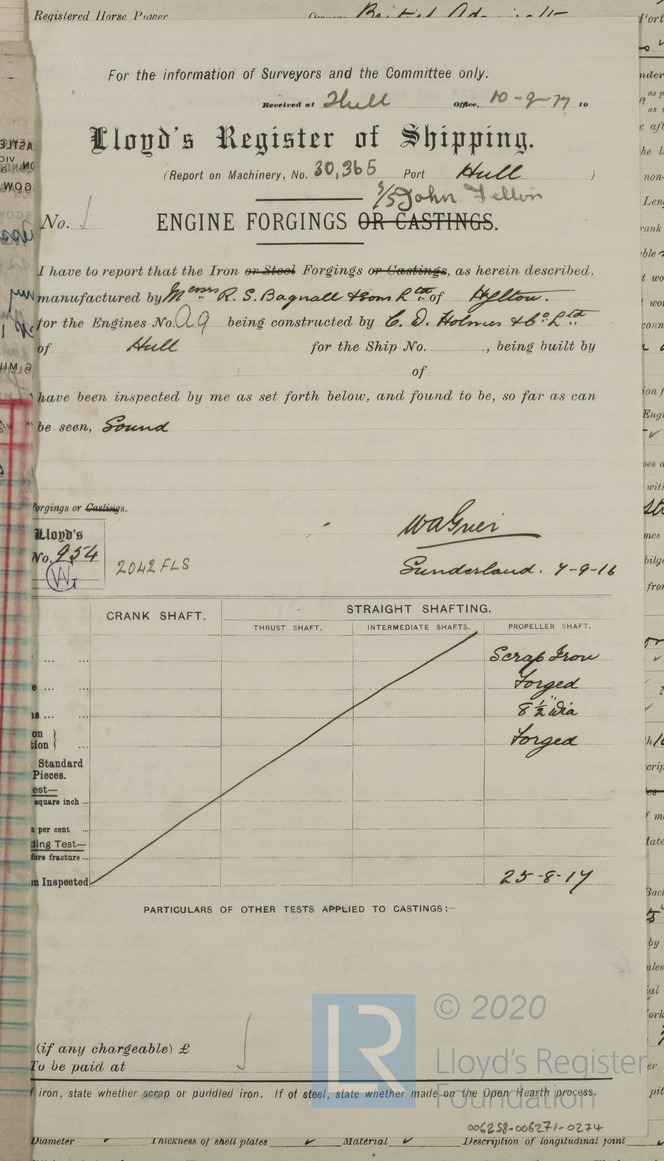 Registered Horse Power
For the information of Surveyors and the Committee only.
Received at Hull Office, 10-9-17 19
Lloyd's Register of Shipping.
(Report on Machinery, No. 30,365 Port Hull )
S/S John Felton
No.
ENGINE FORGINGS OR CASTINGS.
I have to report that the Iron or Steel Forgings or Castings, as herein described,
manufactured by Messrs R. S. Bagnall & Sons Ltd of Hylton.
for the Engines No. being constructed by C. D. Holmes & Co. Ltd
of Hull for the Ship No. , being built by
of
have been inspected by me as set forth below, and found to be, so far as can
be seen, Sound
orgings or Castings.
Lloyd's
No. 954
2042 FLS
Sunderland. 7-9-16
CRANK SHAFT.
STRAIGHT SHAFTING.
THRUST SHAFT. INTERMEDIATE SHAFTS. PROPELLER SHAFT.
... ... Scrap Iron
e ... ... Forged
... ... 8 1/2" Dia
on
tion } ... Forged
Standard
Pieces.
est—
square inch ...
s per cent ...
ding Test—
fore fracture ...
n Inspected 25-8-17
PARTICULARS OF OTHER TESTS APPLIED TO CASTINGS:—
(if any chargeable) £
To be paid at
f iron, state whether scrap or puddled iron. If of steel, state whether made on the Open Hearth process.
LR
© 2020
Lloyd's Register
Foundation
006258-006271-0274
Diameter Thickness of shell plates Material Description of longitudinal joint